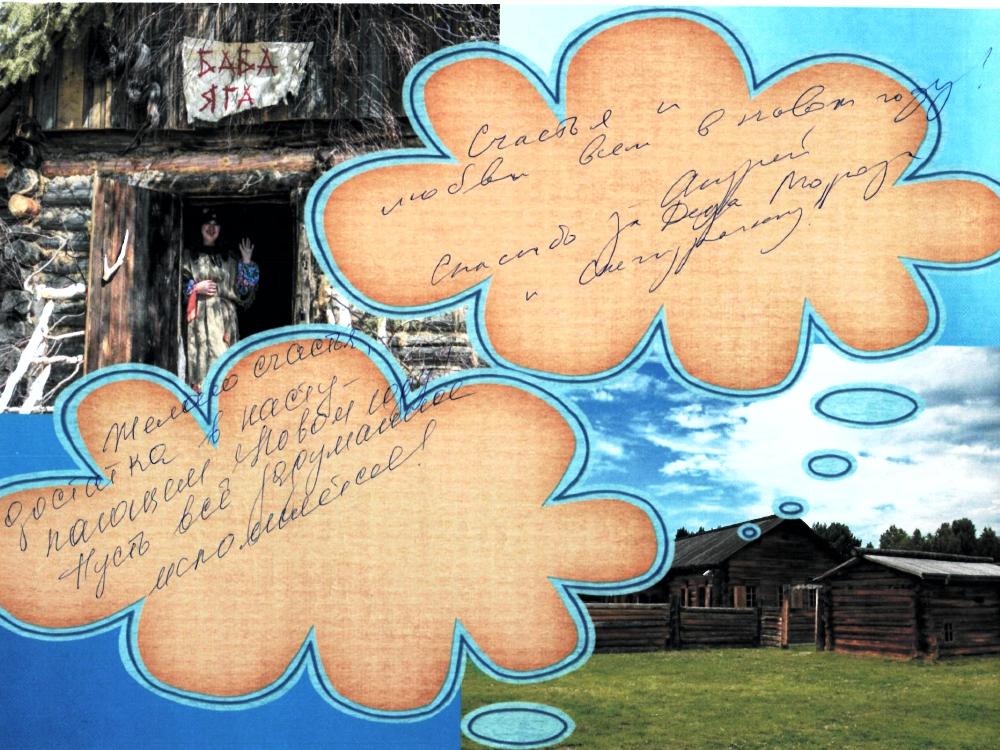 БАБА
ЯГА
Счастья и
любви всем в новом году!
Андрей
Спасибо за Деда Мороза
и Снегурочку.
Желаю счастья,
достатка в насту-
пающем Новом году
Пусть всё задуманное
исполнится!